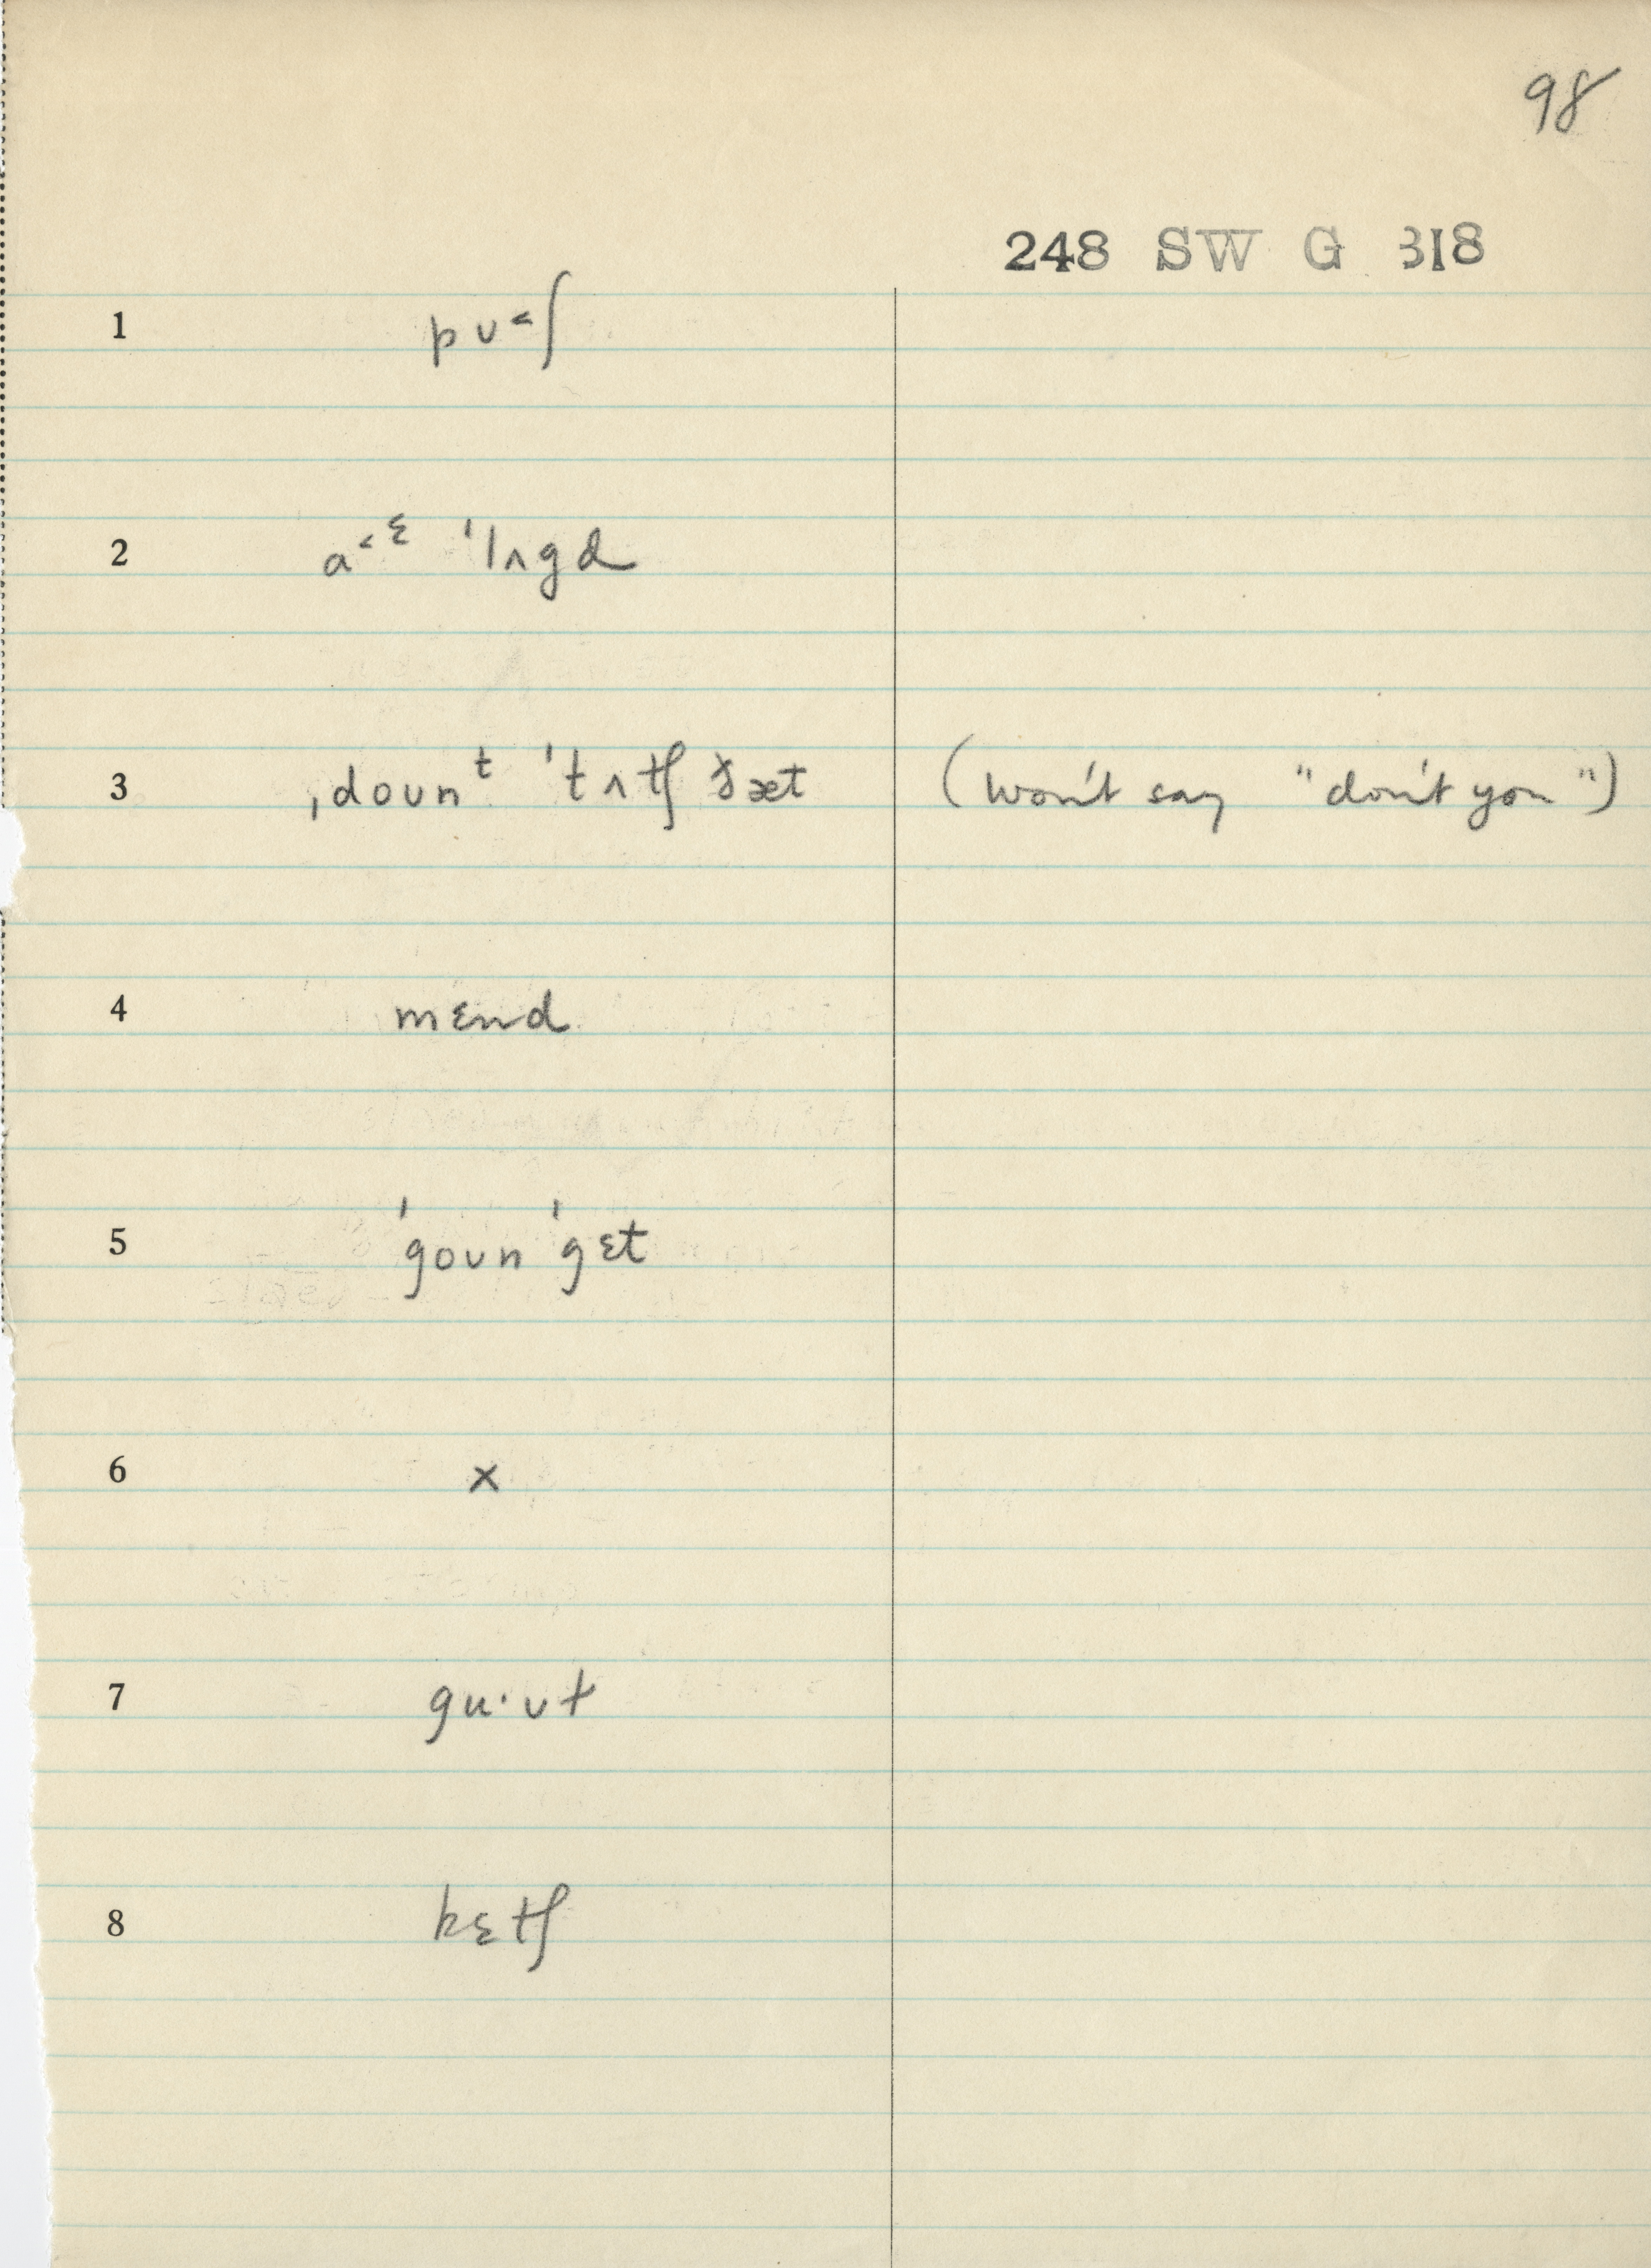 98
248 SW G 318
1 pʊ˂ʃ
2 a˂ᵋ ˈlʌgd
3 ˌdoʊnᵗ ˈtʌtʃ ðæt (won't say "don't you")
4 mɛnd
5 ˈgoʊn ˈgɛt
6 x
7 gu·ʊɫ
8 kɛtʃ